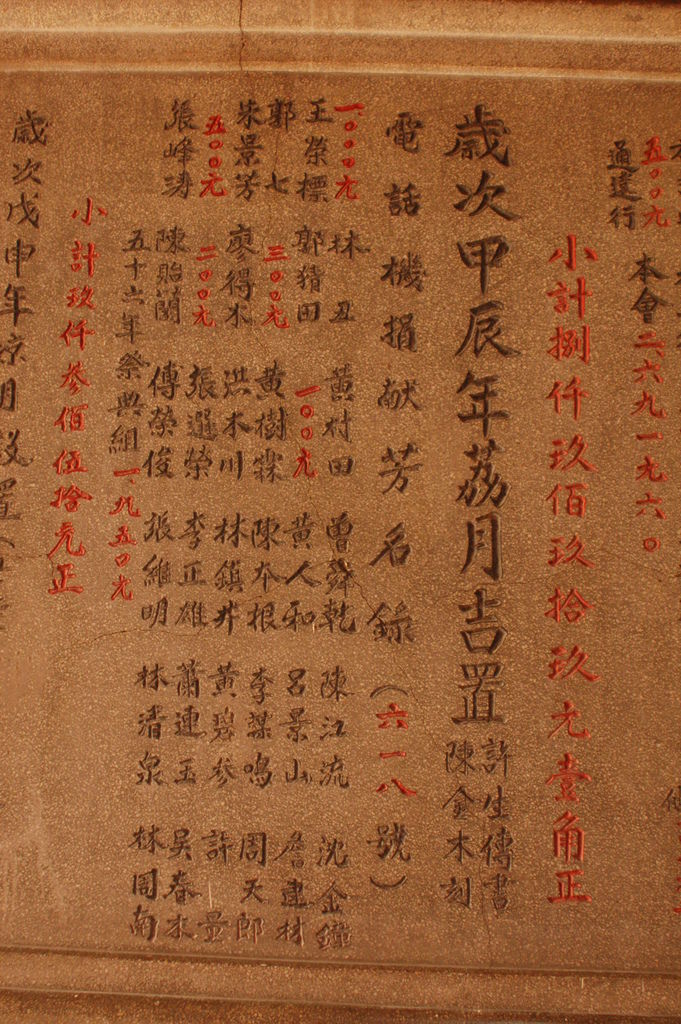 五〇〇元
通達行 本會 二六九一九六〇
小計捌仟玖佰玖拾玖元壹角正
歲次甲辰年荔月吉置
許生傳書
陳金木刻
電話機捐献芳名錄(六一八號)
一、〇〇〇元 林丑 黃村田 曾舜乾 陳江流 沈金鐘
王榮標 郭猜田 一〇〇元 黃人和 呂景山 詹建材
郭七 三〇〇元 黃樹霖 陳本根 李葉鳴 周天郎
朱景芳 廖得木 洪木川 林鎮井 黃碧參 許量
五〇〇元 二〇〇元 張選榮 李正雄 蕭連玉 吳春木
張峰濤 陳貽蘭 傅榮俊 張維明 林清泉 林周南
五十六年祭典組 一、九五〇元
小計玖仟叁佰伍拾元正
歲次戊申年 月設置